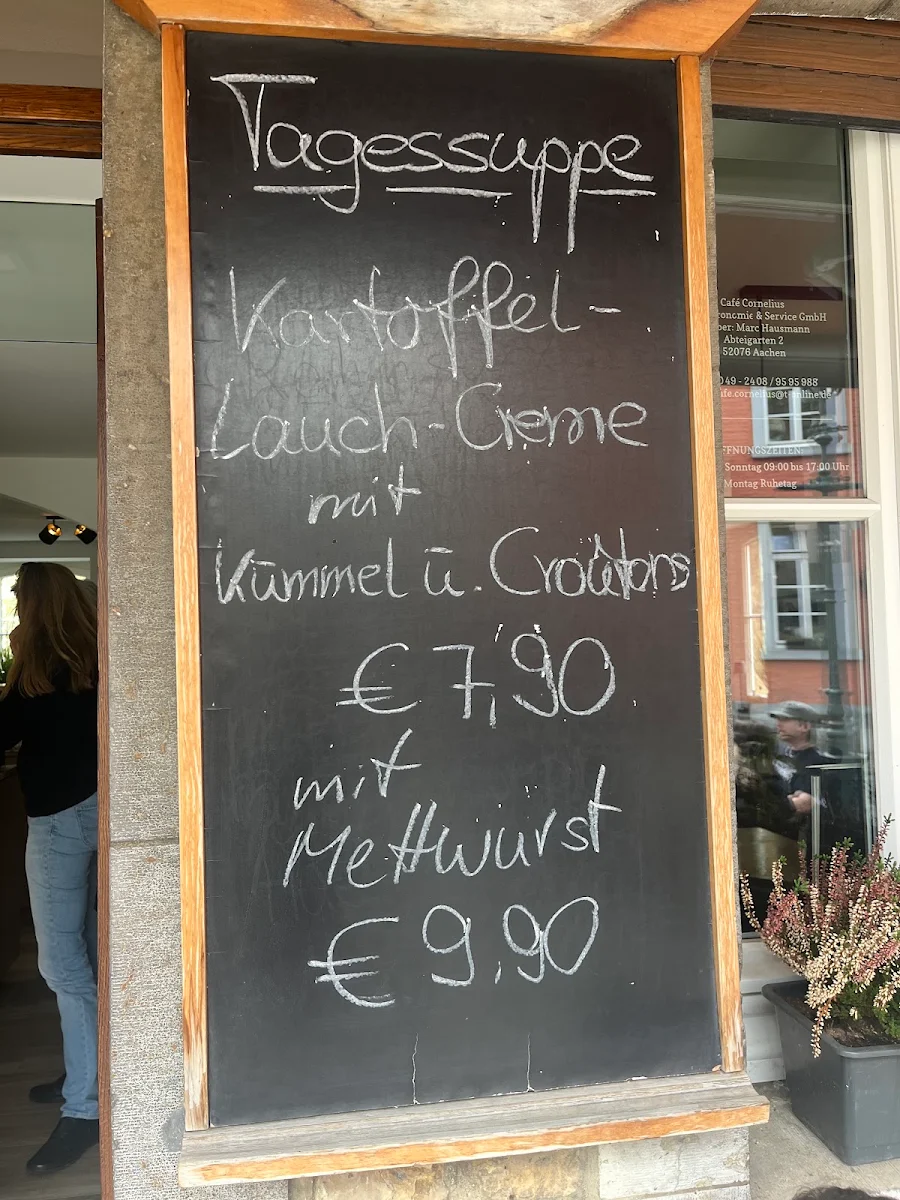 Tagessuppe
Kartoffel-
Lauch-Creme
mit
Kümmel u. Croûtons
€ 7,90
mit
Mettwurst
€ 9,90
Café Cornelius
& Service GmbH
Marc Hausmann
Abteigarten 2
52076 Aachen
049 - 2408 / 95 95 988
fe.cornelius@t-online.de
FFNUNGSZEITEN:
Sonntag 09:00 bis 17:00 Uhr
Montag Ruhetag